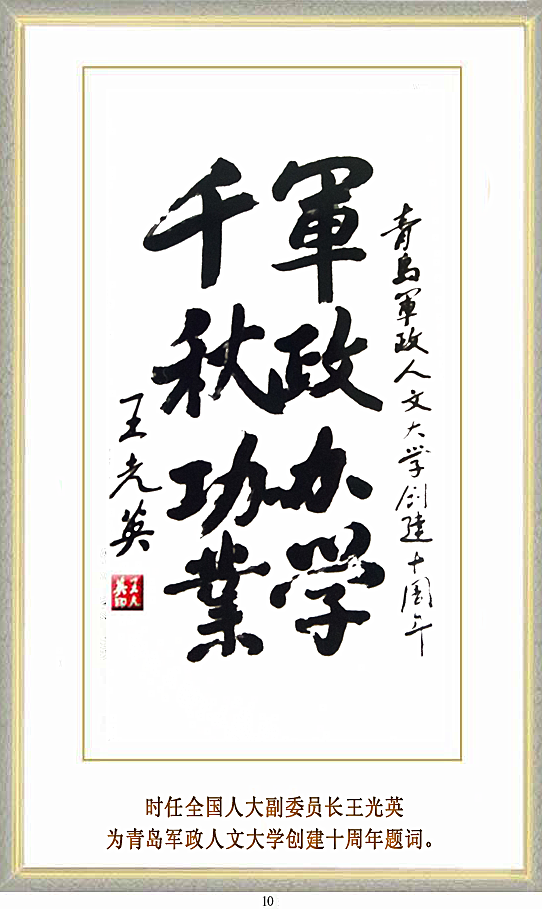 青島軍政人文大学创建十周年
軍政办学
千秋功業
王光英
时任全国人大副委员长王光英
为青岛军政人文大学创建十周年题词。
10